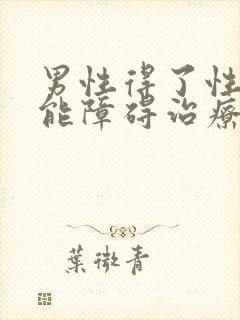 男性得了性
能障碍治療
葉微青